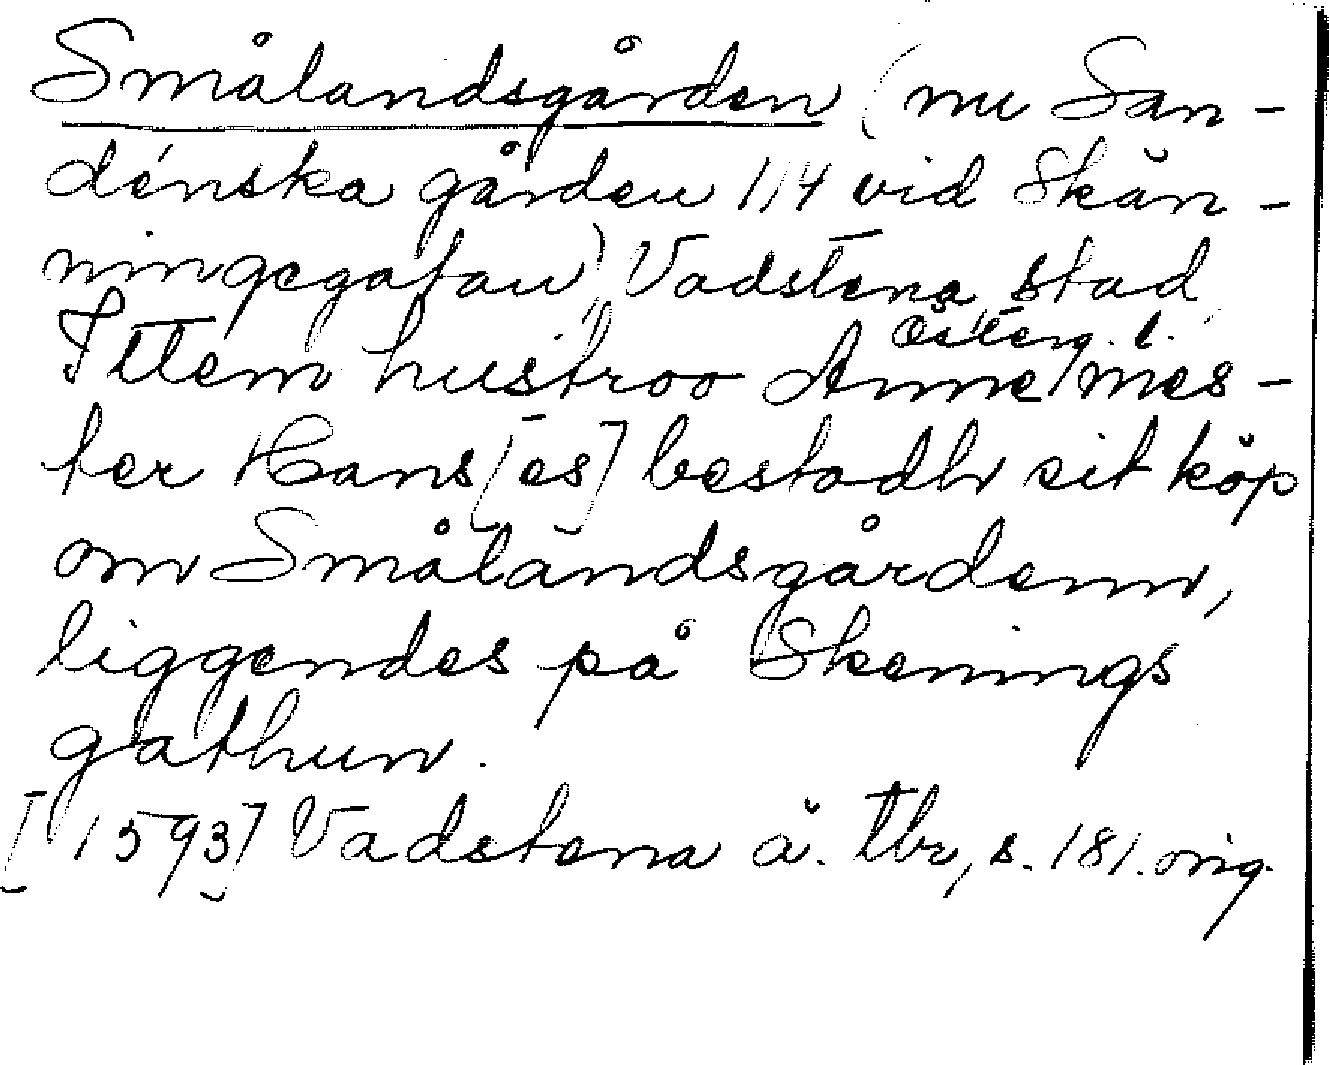 Smålandsgården (nu San-
dénska gården 114 vid Skän-
ningegatan) Vadstena stad
Österg. l.
Ittem hustroo Anne mes-
ter Hans[es] bestodh sit köp
om Smålandsgårdenn,
liggendes på Skenings
gathun.
[1593] Vadstena ä. tbr, s. 181. orig.